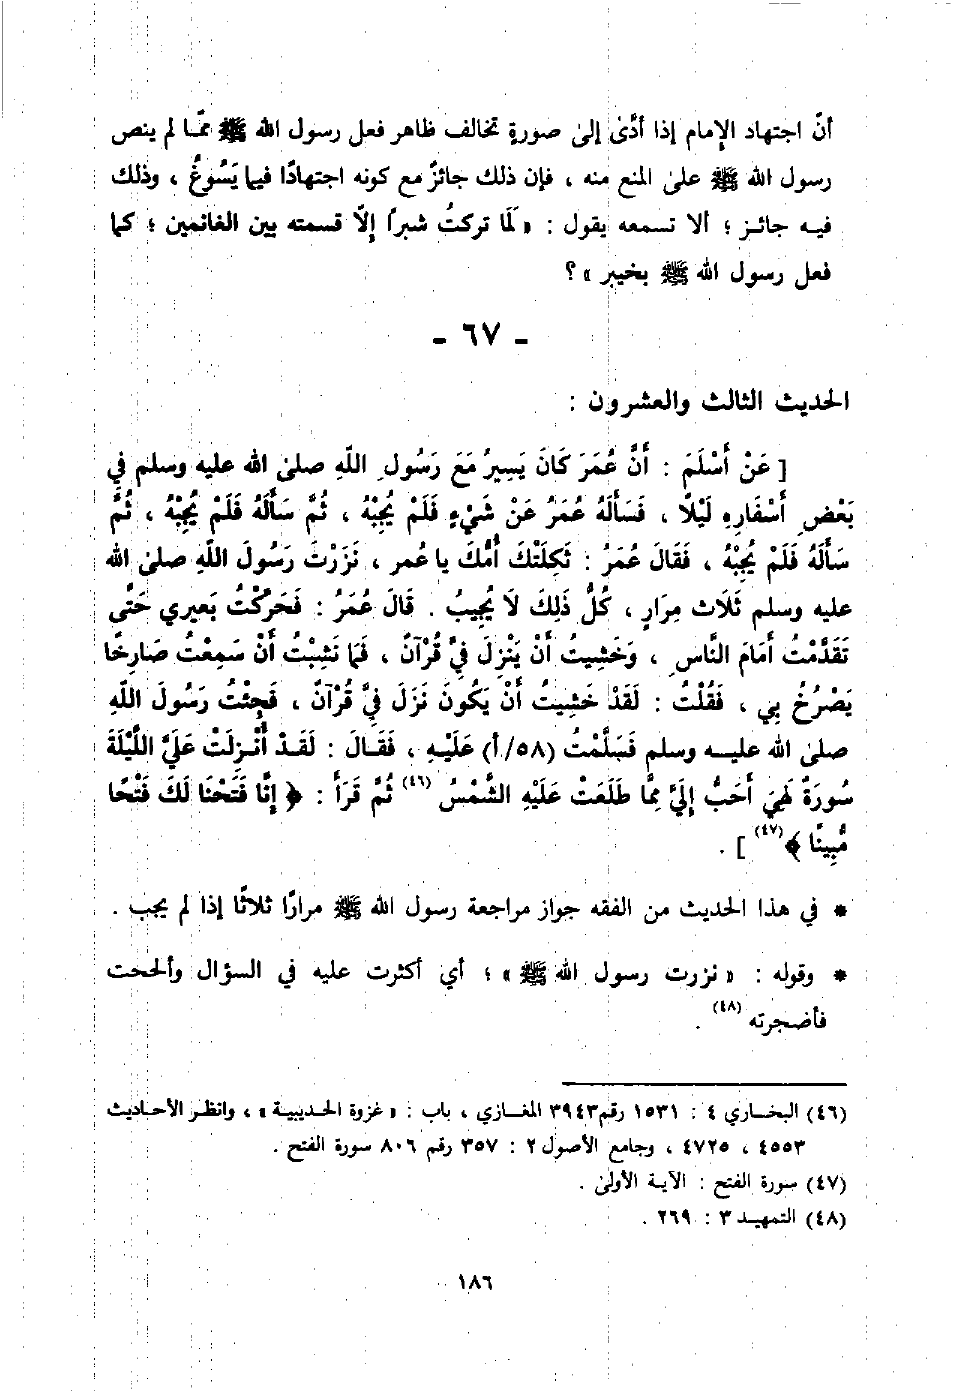 أنّ اجتهاد الإمام إذا أدّىٰ إلىٰ صورةٍ تخالف ظاهر فعل رسول الله ﷺ ممّا لم ينص
رسول الله ﷺ علىٰ المنع منه ، فإن ذلك جائزٌ مع كونه اجتهادًا فيما يَسُوغُ ، وذلك
فيه جائز ؛ ألا تسمعه يقول : « لَمَا تركتُ شبرًا إلّا قسمته بين الغانمين ؛ كما
فعل رسول الله ﷺ بخيبر » ؟
- ٦٧ -
الحديث الثالث والعشرون :
[ عَنْ أَسْلَمَ : أَنَّ عُمَرَ كَانَ يَسِيرُ مَعَ رَسُولِ اللَّهِ صلىٰ الله عليه وسلم فِي
بَعْضِ أَسْفَارِهِ لَيْلًا ، فَسَأَلَهُ عُمَرُ عَنْ شَيْءٍ فَلَمْ يُجِبْهُ ، ثُمَّ سَأَلَهُ فَلَمْ يُجِبْهُ ، ثُمَّ
سَأَلَهُ فَلَمْ يُجِبْهُ ، فَقَالَ عُمَرُ : ثَكِلَتْكَ أُمُّكَ يا عُمر ، نَزَرْتَ رَسُولَ اللَّهِ صلىٰ الله
عليه وسلم ثَلَاث مِرَارٍ ، كُلُّ ذَلِكَ لَا يُجِيبُ . قَالَ عُمَرُ : فَحَرَّكْتُ بَعِيري حَتَّى
تَقَدَّمْتُ أَمَامَ النَّاسِ ، وَخَشِيتُ أَنْ يَنْزِلَ فِيَّ قُرْآنٌ ، فَمَا نَشِبْتُ أَنْ سَمِعْتُ صَارِخًا
يَصْرُخُ بِي ، فَقُلْتُ : لَقَدْ خَشِيتُ أَنْ يَكُونَ نَزَلَ فِيَّ قُرْآنٌ ، فَجِئْتُ رَسُولَ اللَّهِ
صلىٰ الله عليه وسلم فَسَلَّمْتُ (٥٨/أ) عَلَيْهِ ، فَقَالَ : لَقَدْ أُنْزِلَتْ عَلَيَّ اللَّيْلَةَ
سُورَةٌ لَهِيَ أَحَبُّ إِلَيَّ مِمَّا طَلَعَتْ عَلَيْهِ الشَّمْسُ (٤٦) ثُمَّ قَرَأَ : ﴿ إِنَّا فَتَحْنَا لَكَ فَتْحًا
مُّبِينًا ﴾(٤٧) ] .
* في هذا الحديث من الفقه جواز مراجعة رسول الله ﷺ مرارًا ثلاثًا إذا لم يجب .
* وقوله : « نزرت رسول الله ﷺ » ؛ أي أكثرت عليه في السؤال وألححت
فأضجرته (٤٨) .
(٤٦) البخاري ٤ : ١٥٣١ رقم ٣٩٤٣ المغازي ، باب : « غزوة الحديبية » ، وانظر الأحاديث
٤٥٥٣ ، ٤٧٢٥ ، وجامع الأصول ٢ : ٣٥٧ رقم ٨٠٦ سورة الفتح .
(٤٧) سورة الفتح : الآية الأولىٰ .
(٤٨) التمهيد ٣ : ٢٦٩ .
١٨٦